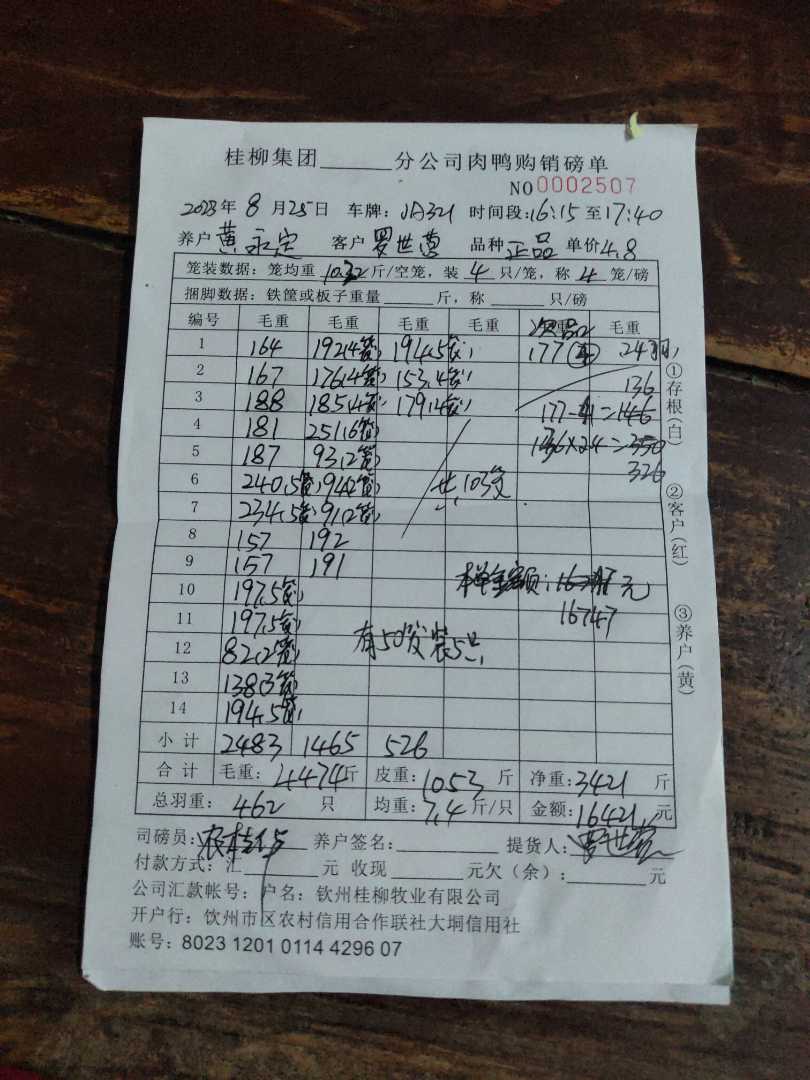 桂柳集团______分公司肉鸭购销磅单
NO 0002507
2023年 8月25日 车牌: JA321 时间段:16:15至17:40
养户 黄永定 客户 罗世 品种 正品 单价4.8
笼装数据: 笼均重 10.32 斤/空笼, 装 4 只/笼, 称 4 笼/磅
捆脚数据: 铁筐或板子重量______斤, 称______只/磅
编号 毛重 毛重 毛重 毛重 次品 毛重
1 164 192(4笼) 194.5笼) 177 24羽
2 167 176(4笼) 153.4笼) 136
3 188 185(4笼) 179(4笼) 177-41=146
4 181 251(6笼) 136×24=350
5 187 93(2笼) 326
6 240(5笼) 94(2笼) 共103笼
7 234(5笼) 91(2笼)
8 157 192
9 157 191 本单金额: 元
10 197(5笼) 16747
11 197(5笼)
12 82(2笼) 有50笼装5只
13 138(3笼)
14 194(5笼)
小计 2483 1465 526
合计 毛重: 4474斤 皮重: 1053斤 净重: 3421斤
总羽重: 462 只 均重: 7.4斤/只 金额: 16421元
①存根(白)
②客户(红)
③养户(黄)
司磅员: 养户签名:______ 提货人: 罗世
付款方式: 汇______元 收现______元欠(余):______元
公司汇款帐号: 户名: 钦州桂柳牧业有限公司
开户行: 饮州市区农村信用合作联社大垌信用社
账号: 8023 1201 0114 4296 07